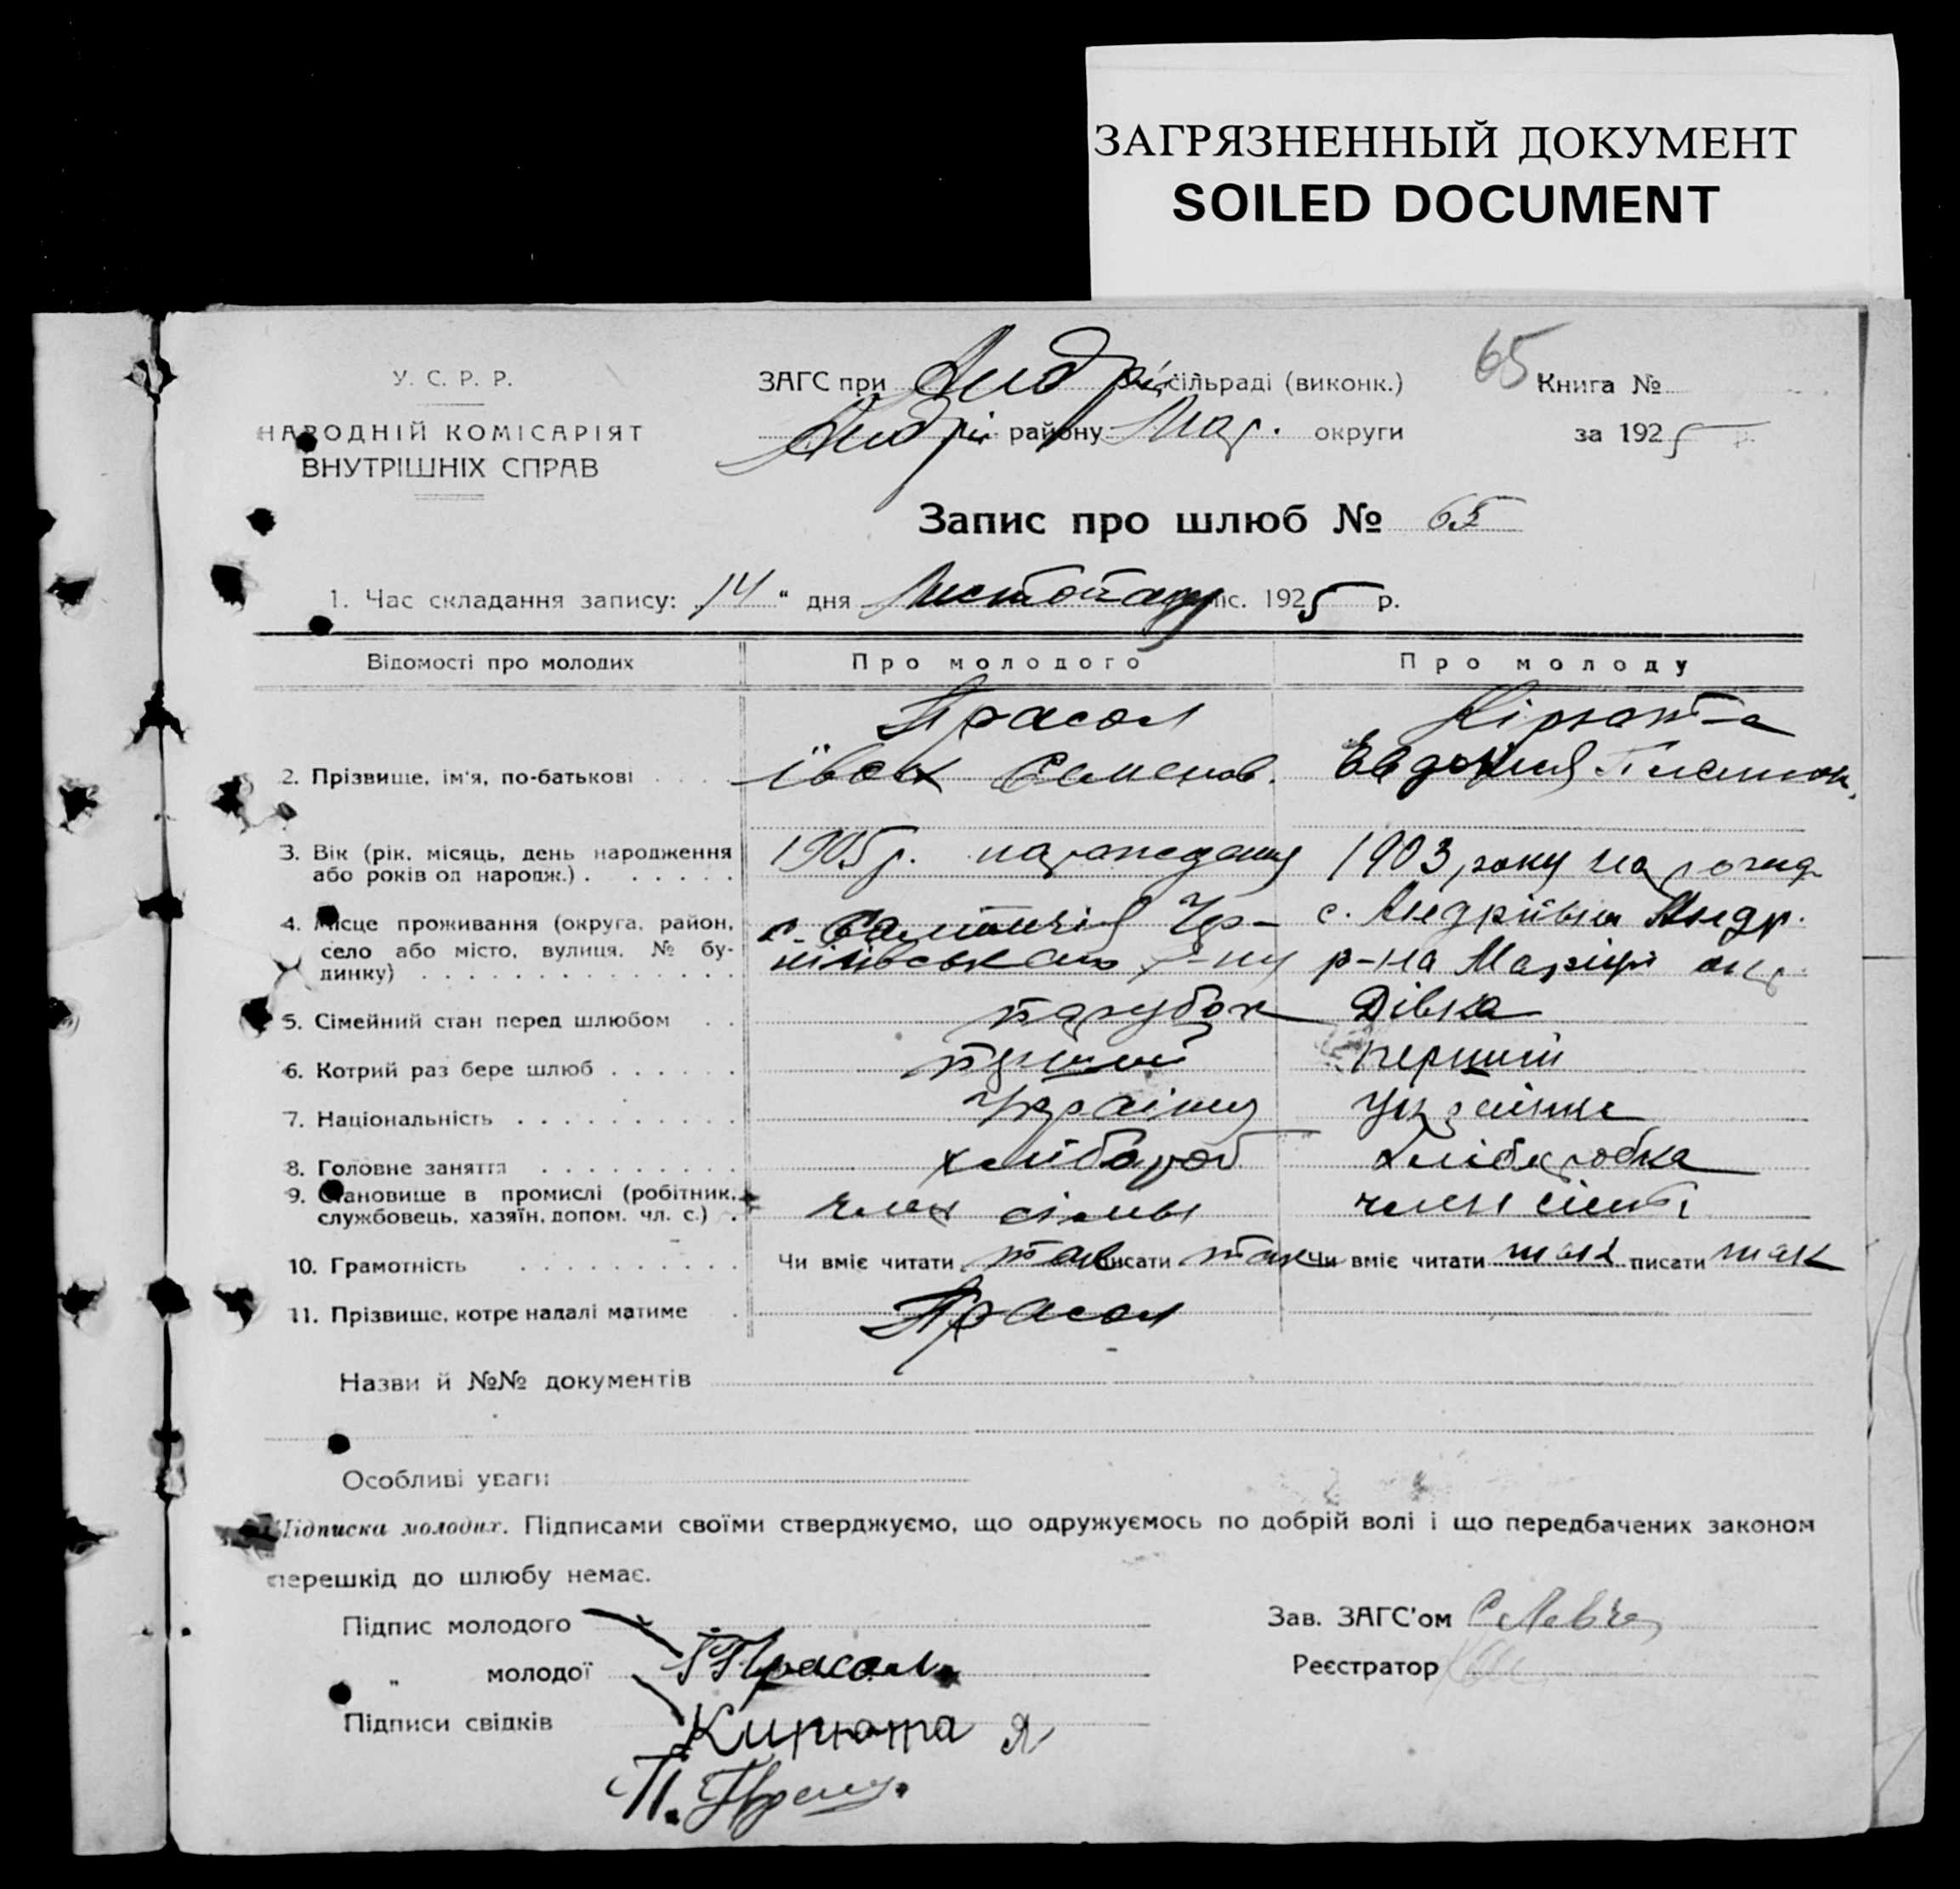 ЗАГРЯЗНЕННЫЙ ДОКУМЕНТ
SOILED DOCUMENT
У. С. Р. Р.
НАРОДНІЙ КОМІСАРІЯТ
ВНУТРІШНІХ СПРАВ
ЗАГС при Андрі сільраді (виконк.)
Андрі району Мар. округи
65 Книга №
за 1925 р.
Запис про шлюб № 65
1. Час складання запису: 14 " дня Листопаду міс. 1925 р.
Відомості про молодих Про молодого Про молоду
Прасол
2. Прізвище, ім'я, по-батькові Іван Семенов. Евдокия
3. Вік (рік, місяць, день народження 1905 р. народження 1903 року народж
або років од народж.)
4. Місце проживання (округа, район, с. с. Андріївка Андр.
село або місто, вулиця, № бу- р-ну р-на Маріуп окр.
динку)
5. Сімейний стан перед шлюбом парубок Дівка
6. Котрий раз бере шлюб перший перший
7. Національність Українец Українка
8. Головне заняття хлібороб хліборобка
9. Становище в промислі (робітник, член сімьі член сімьі
службовець, хазяїн, допом. чл. с.)
10. Грамотність Чи вміє читати так писати так Чи вміє читати так писати так
11. Прізвище, котре надалі матиме Прасол
Назви й №№ документів
Особливі уваги
Підписка молодих. Підписами своїми стверджуємо, що одружуємось по добрій волі і що передбачених законом
перешкід до шлюбу немає.
Підпис молодого
Зав. ЗАГС'ом
" молодої Прасол
Реєстратор
Підписи свідків